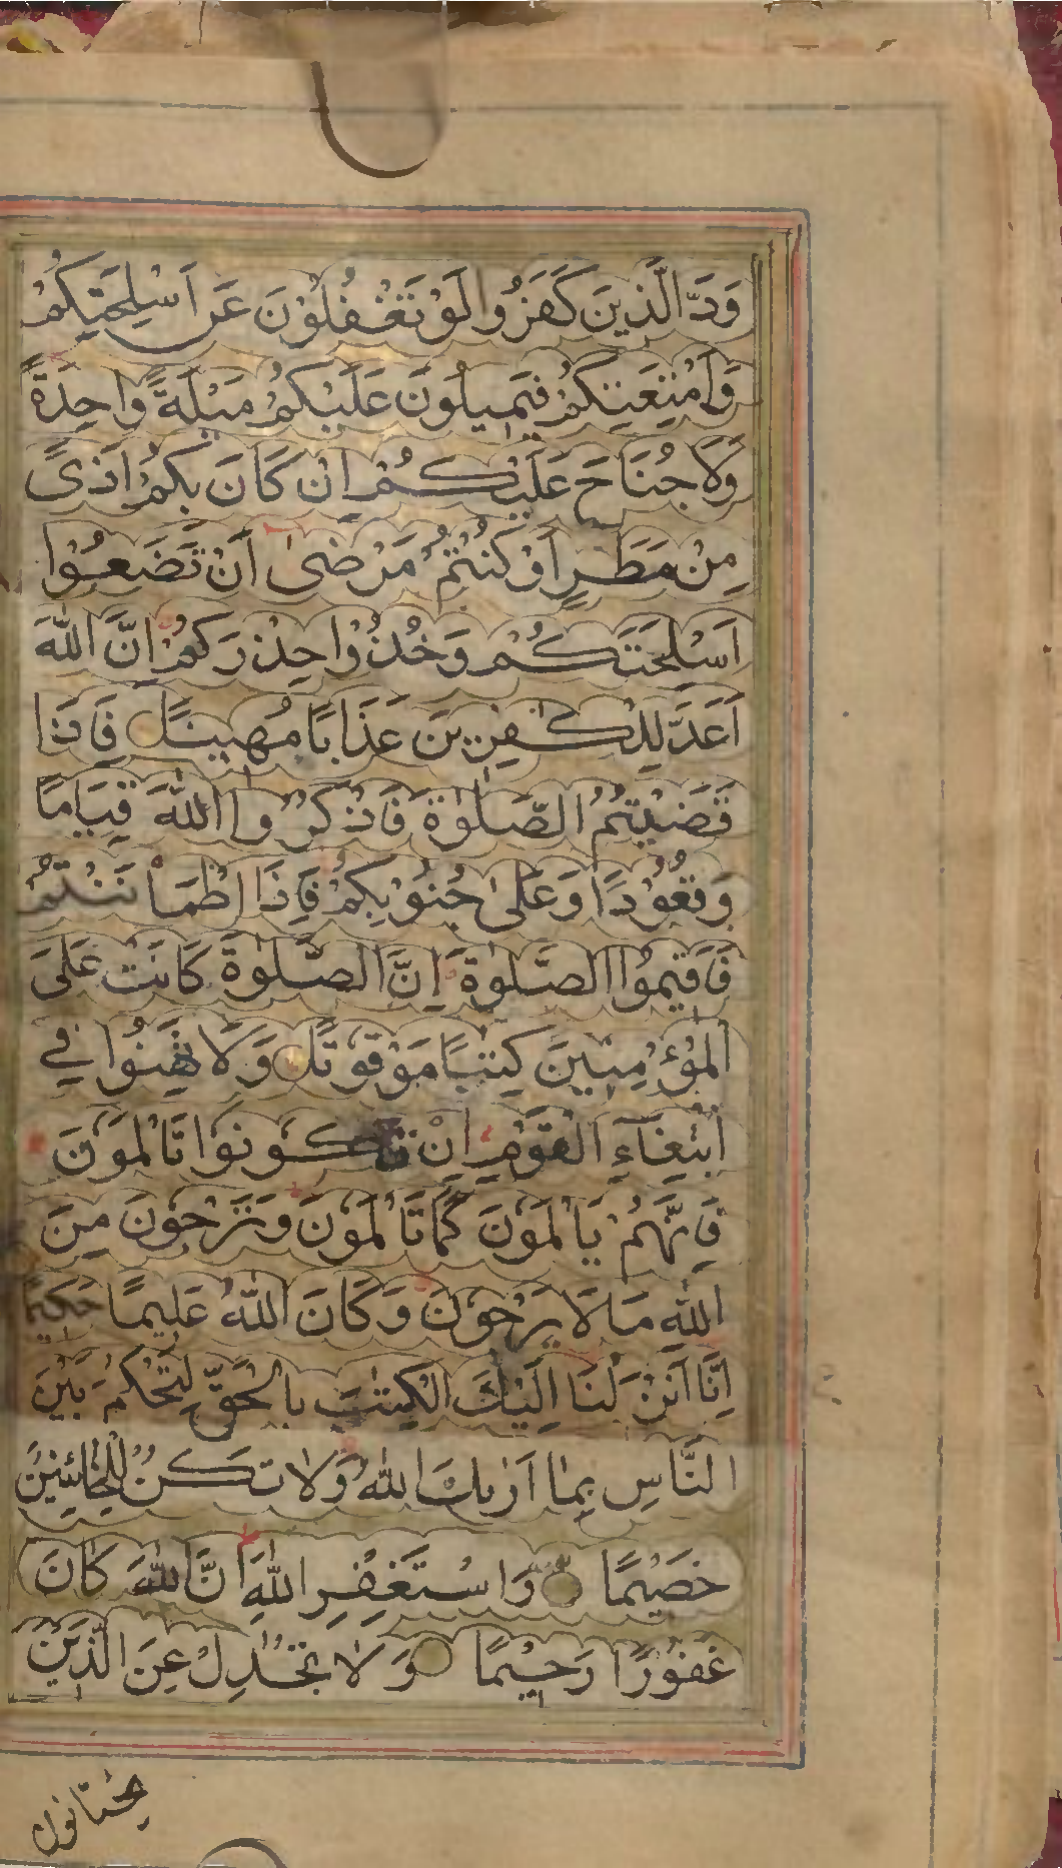 وَدَّ الَّذِينَ كَفَرُوا لَوْ تَغْفُلُوْنَ عَنْ اَسْلِحَتِكُمْ
وَاَمْتِعَتِكُمْ فَيَمِيلُونَ عَلَيْكُمْ مَيْلَةً وَاحِدَةً
وَلَا جُنَاحَ عَلَيْكُمْ اِنْ كَانَ بِكُمْ اَذىً
مِنْ مَطَرٍ اَوْ كُنْتُمْ مَرْضىٰ اَنْ تَضَعُوْا
اَسْلِحَتَكُمْ وَخُذُوْا حِذْرَكُمْ اِنَّ اللّٰهَ
اَعَدَّ لِلْكٰفِرِيْنَ عَذَابًا مُهِينًا فَاِذَا
قَضَيْتُمُ الصَّلٰوةَ فَاذْكُرُوا اللّٰهَ قِيَامًا
وَقُعُوْدًا وَعَلىٰ جُنُوْبِكُمْ فَاِذَا اطْمَأْنَنْتُمْ
فَاَقِيمُوا الصَّلٰوةَ اِنَّ الصَّلٰوةَ كَانَتْ عَلَى
الْمُؤْمِنِيْنَ كِتٰبًا مَوْقُوْتًا وَلَا تَهِنُوا فِي
ابْتِغَاءِ الْقَوْمِ اِنْ تَكُوْنُوْا تَاْلَمُوْنَ
فَاِنَّهُمْ يَاْلَمُوْنَ كَمَا تَاْلَمُوْنَ وَتَرْجُوْنَ مِنَ
اللّٰهِ مَا لَا يَرْجُوْنَ وَكَانَ اللّٰهُ عَلِيمًا حَكِيمًا
اِنَّا اَنْزَلْنَا اِلَيْكَ الْكِتٰبَ بِالْحَقِّ لِتَحْكُمَ بَيْنَ
النَّاسِ بِمَا اَرٰىكَ اللّٰهُ وَلَا تَكُنْ لِلْخَائِنِيْنَ
خَصِيْمًا وَاسْتَغْفِرِ اللّٰهَ اِنَّ اللّٰهَ كَانَ
غَفُوْرًا رَحِيْمًا وَلَا تُجَادِلْ عَنِ الَّذِيْنَ
يختانون